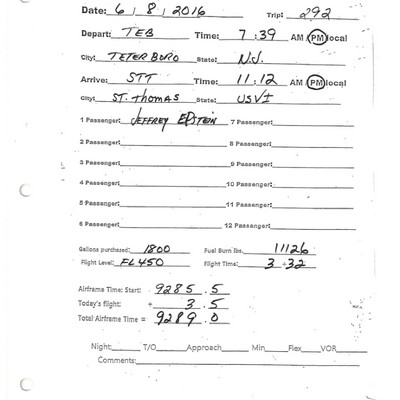 Date: 6 / 8 / 2016 Trip: 292
Depart: TEB Time: 7:39 AM PM local
City: TETERBORO State: N.J.
Arrive: STT Time: 11:12 AM PM local
City: ST. Thomas State: USVI
1 Passenger: JEFFREY EPSTEIN 7 Passenger:
2 Passenger: 8 Passenger:
3 Passenger: 9 Passenger:
4 Passenger: 10 Passenger:
5 Passenger: 11 Passenger:
6 Passenger: 12 Passenger:
Gallons purchased: 1800 Fuel Burn lbs. 11126
Flight Level: FL450 Flight Time: 3 + 32
Airframe Time: Start: 9285.5
Today's flight: + 3.5
Total Airframe Time = 9289.0
Night: T/O Approach Min Flex VOR
Comments: